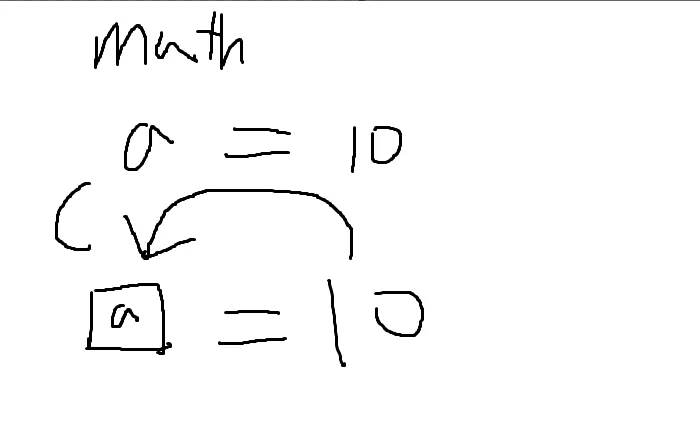 math
a = 10
C
a = 10